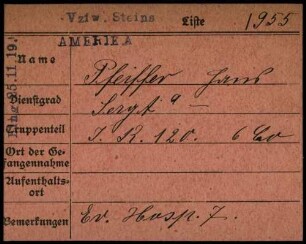 Vzlw. Steins Liste 1955
AMERIKA
Eing. 25.11.19.
Name Pfeiffer Hans
Dienstgrad Sergt
Truppenteil I. R. 120. 6 Co
Ort der Gefangennahme
Aufenthaltsort
Bemerkungen Ev. Hosp. 7.